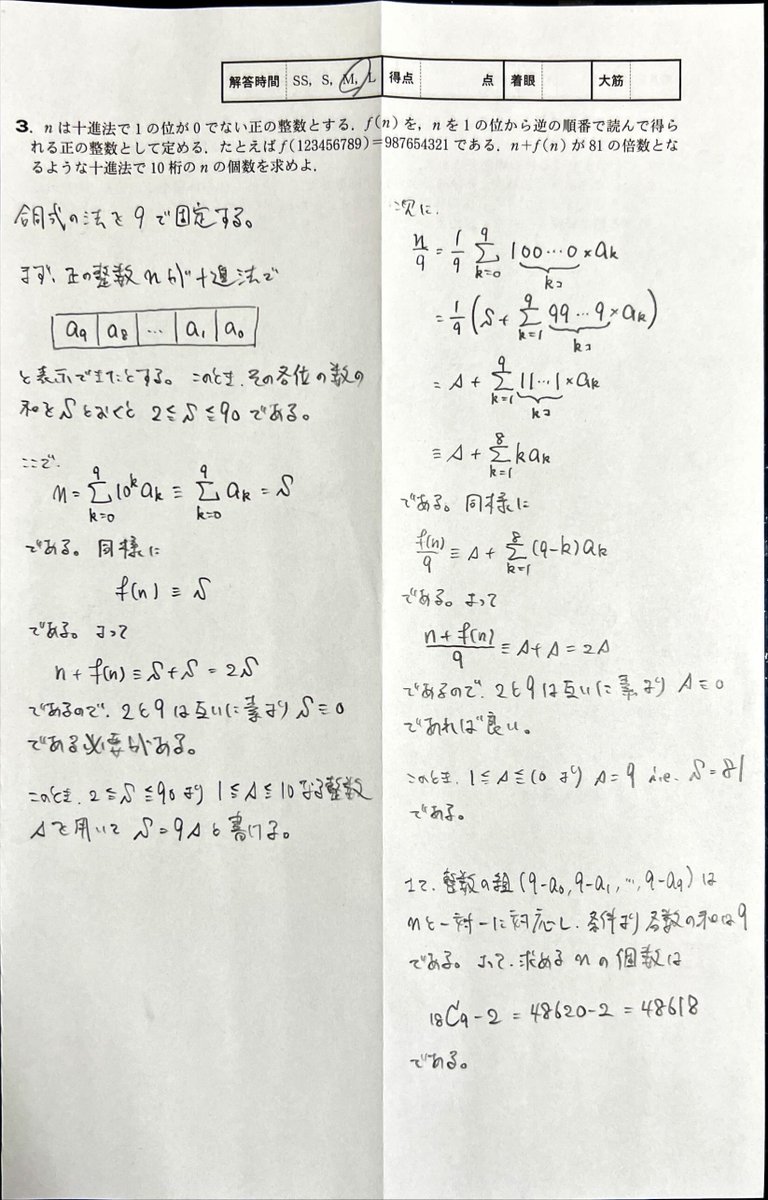 解答時間 SS, S, M, L 得点 点 着眼 大筋
3. nは十進法で1の位が0でない正の整数とする．f(n)を，nを1の位から逆の順番で読んで得ら
れる正の整数として定める．たとえばf(123456789)=987654321である．n+f(n)が81の倍数とな
るような十進法で10桁のnの個数を求めよ．
合同式の法を9で固定する。
まず、正の整数nが十進法で
a₉ a₈ … a₁ a₀
と表示できたとする。このとき、その各位の数の
和をSとおくと 2≦S≦90である。
ここで、
n = Σ_{k=0}^{9} 10^k a_k ≡ Σ_{k=0}^{9} a_k = S
である。同様に
f(n) ≡ S
である。よって
n + f(n) ≡ S + S = 2S
であるので、2と9は互いに素より S ≡ 0
である必要がある。
このとき、2≦S≦90より 1≦s≦10なる整数
sを用いて S=9sと書ける。
次に、
n/9 = 1/9 Σ_{k=0}^{9} 100…0 × a_k
kコ
= 1/9 (S + Σ_{k=1}^{9} 99…9 × a_k)
kコ
= s + Σ_{k=1}^{9} 11…1 × a_k
kコ
≡ s + Σ_{k=1}^{8} k a_k
である。同様に
f(n)/9 ≡ s + Σ_{k=1}^{8} (9-k) a_k
である。よって
(n + f(n))/9 ≡ s + s = 2s
であるので、2と9は互いに素より s ≡ 0
であれば良い。
このとき、1≦s≦10より s=9 i.e. S=81
である。
さて、整数の組 (9-a₀, 9-a₁, …, 9-a₉) は
nと一対一に対応し、条件より各数の和は9
である。よって、求めるnの個数は
₁₈C₉ - 2 = 48620 - 2 = 48618
である。